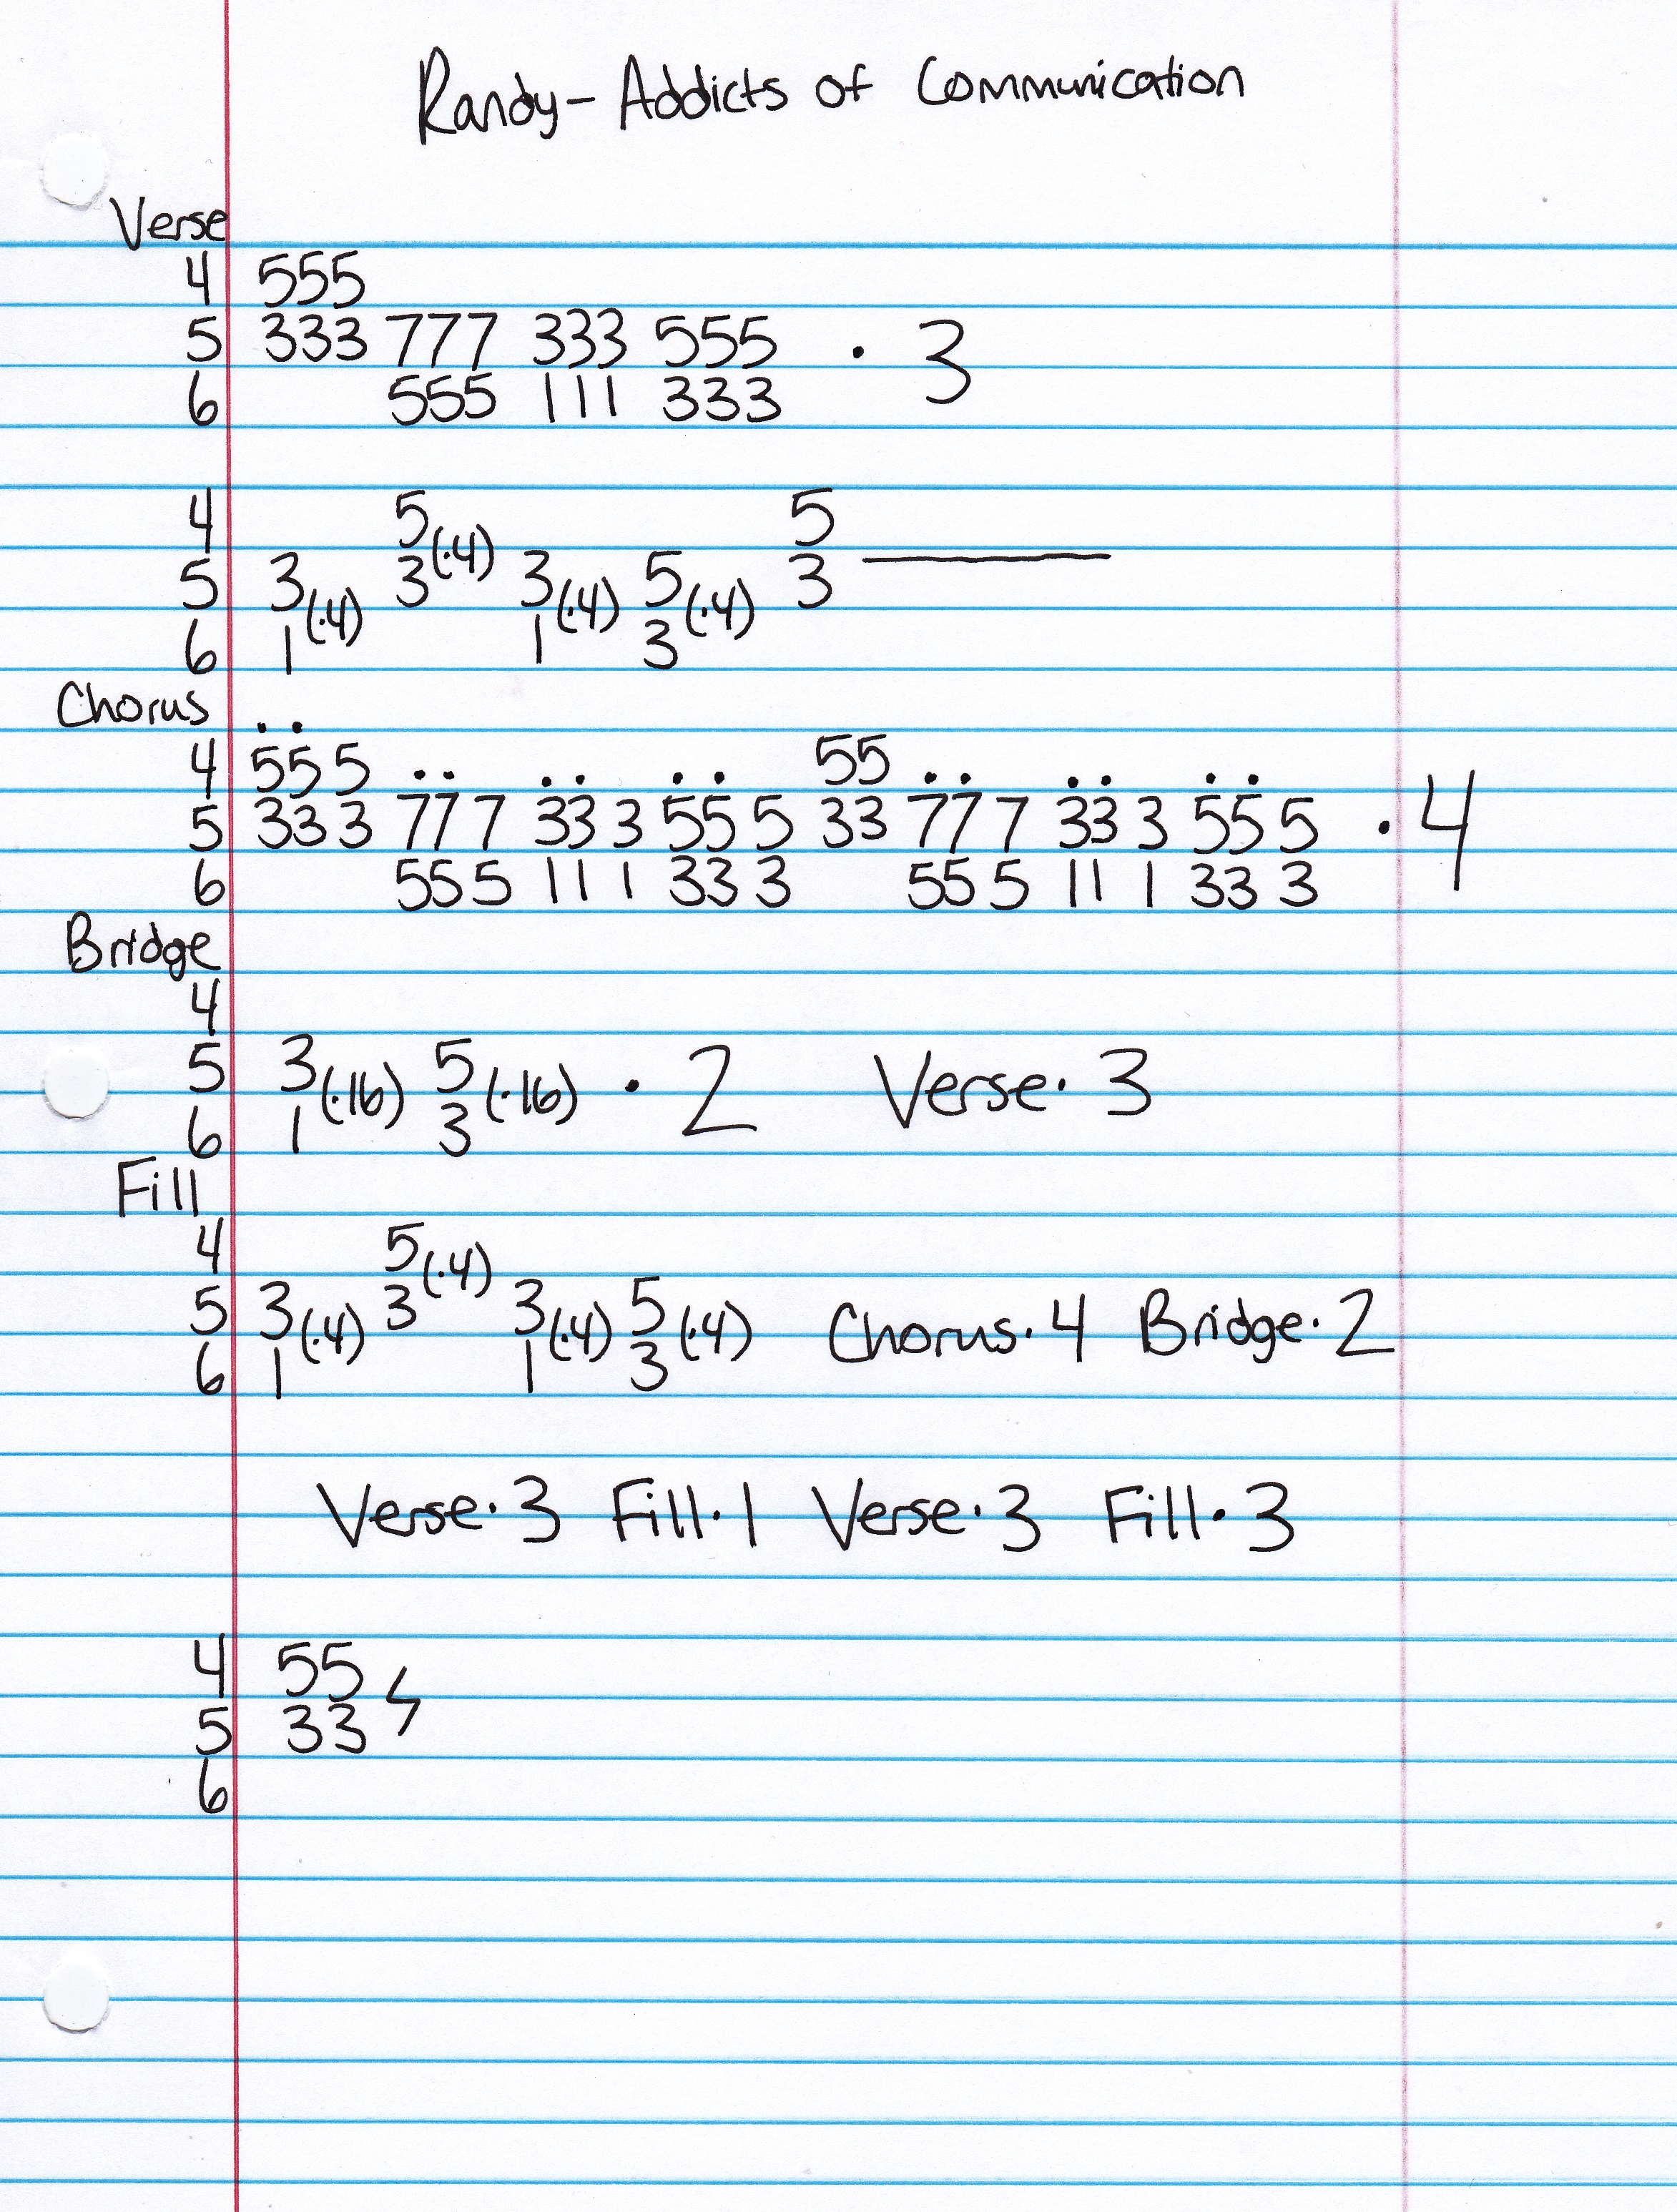 Randy - Addicts of Communication
Verse
4 555
5 333 777 333 555 · 3
6 555 111 333
4 5(·4) 5
5 3(·4) 3 3(·4) 5(·4) 3 ————
6 1 1 3
Chorus
4 555 55
5 333 777 333 555 33 777 333 555 · 4
6 555 111 333 555 111 333
Bridge
4
5 3(·16) 5(·16) · 2 Verse · 3
6 1 3
Fill
4 5(·4)
5 3(·4) 3 3(·4) 5(·4) Chorus · 4 Bridge · 2
6 1 1 3
Verse · 3 Fill · 1 Verse · 3 Fill · 3
4 55
5 33
6